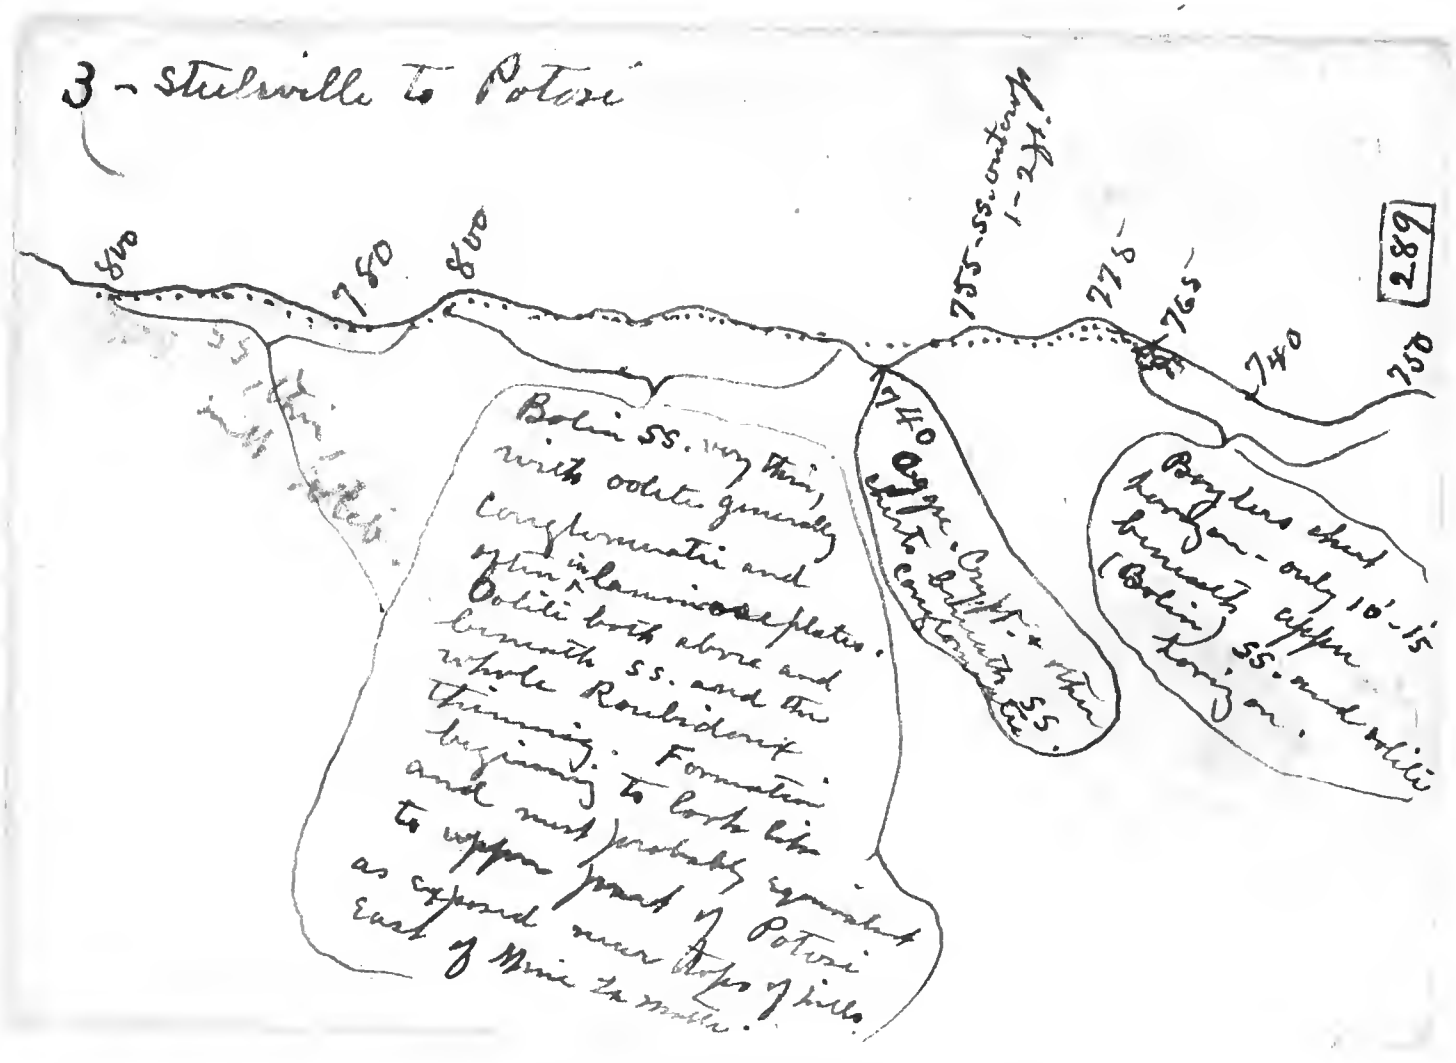 3 - Steelville to Potosi
800
780
800
755 - SS. outcrop
1 - 2 ft.
775
765
740
750
289
SS
thin
in
Bolin SS. very thin,
with oolite generally
Conglomeratic and
often in laminose plates.
Oolite both above and
beneath SS. and the
whole Roubidoux
thinning. Formation
beginning to look like
and most probably equivalent
to upper part of Potosi
as exposed near tops of hills
East of Mine La Motte.
740
Aggre. Crypt. + other
cherts beneath SS.
conglomeratic
chert
horizon - only 10'-15'
beneath upper
(Bolin) SS. and oolite
horizon.